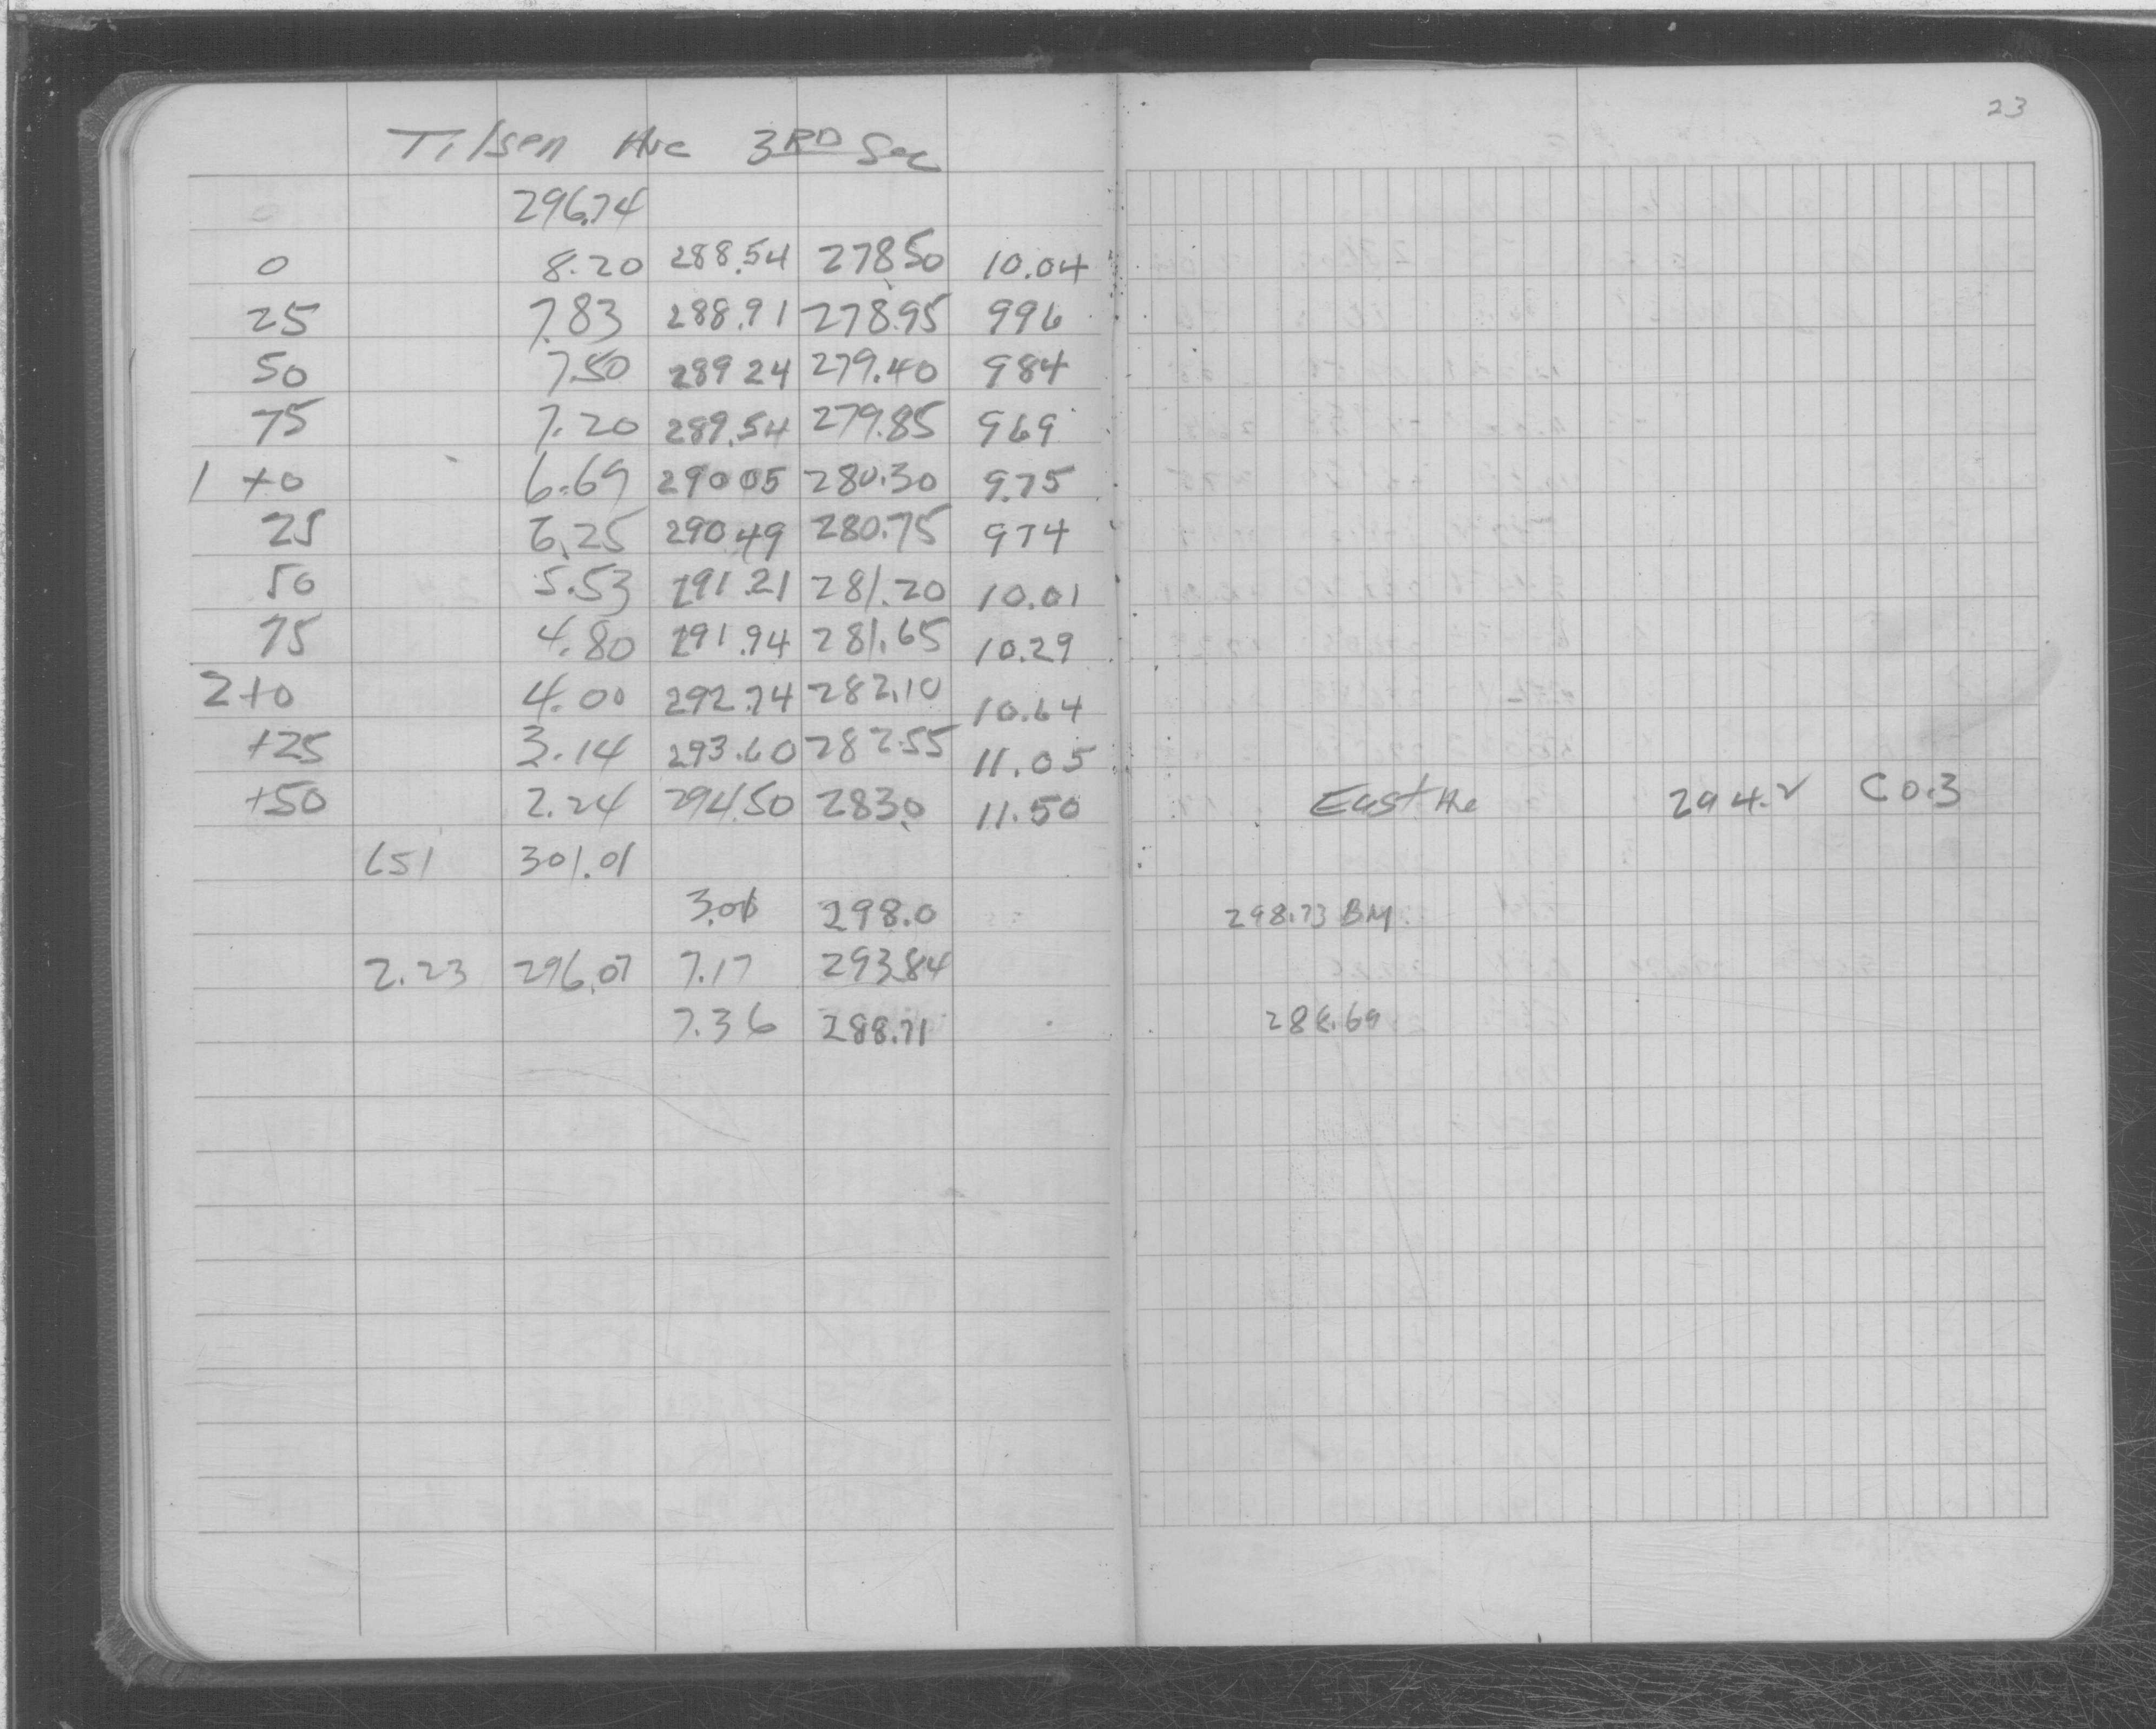 23
Tilsen Ave 3RD Sec
296.74
0 8.20 288.54 27850 10.04
25 7.83 288.91 278.95 996
50 7.50 289 24 279.40 984
75 7.20 289.54 279.85 969
1 +0 6.69 290 05 280.30 9.75
25 6.25 290 49 280.75 974
50 5.53 291.21 281.20 10.01
75 4.80 291.94 281.65 10.29
2+0 4.00 292.74 282.10 10.64
+25 3.14 293.60 282.55 11.05
+50 2.24 294.50 283.0 11.50 East Ave 294.2 C 0.3
651 301.01
3.01 298.0 298.73 BM
2.23 296.07 7.17 293.84
7.36 288.71 288.69